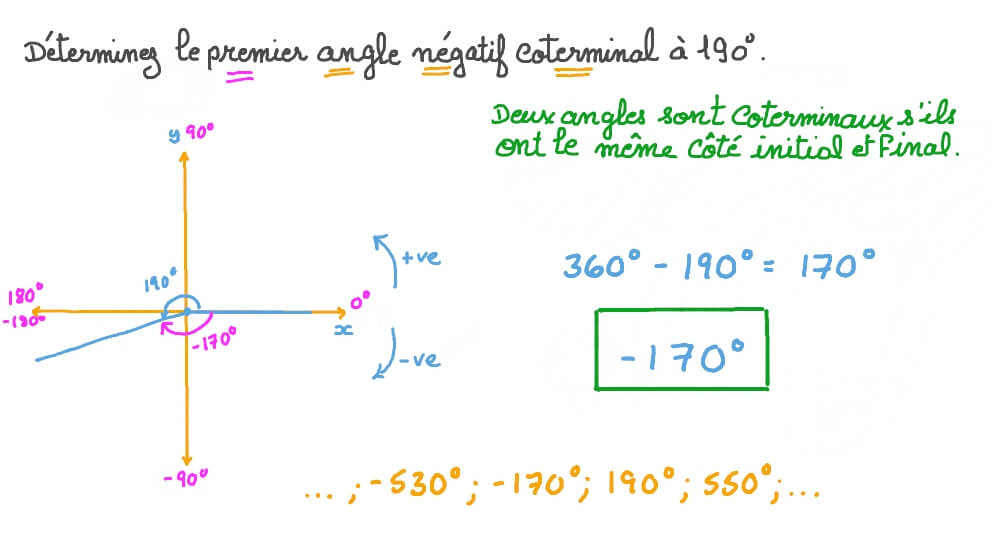 Déterminez le premier angle négatif coterminal à 190°.
Deux angles sont coterminaux s'ils
ont le même côté initial et final.
y 90°
+ve
190°
360° - 190° = 170°
180°
0°
-180°
x
-170°
-ve
-170°
-90°
... ; -530° ; -170° ; 190° ; 550° ; ...